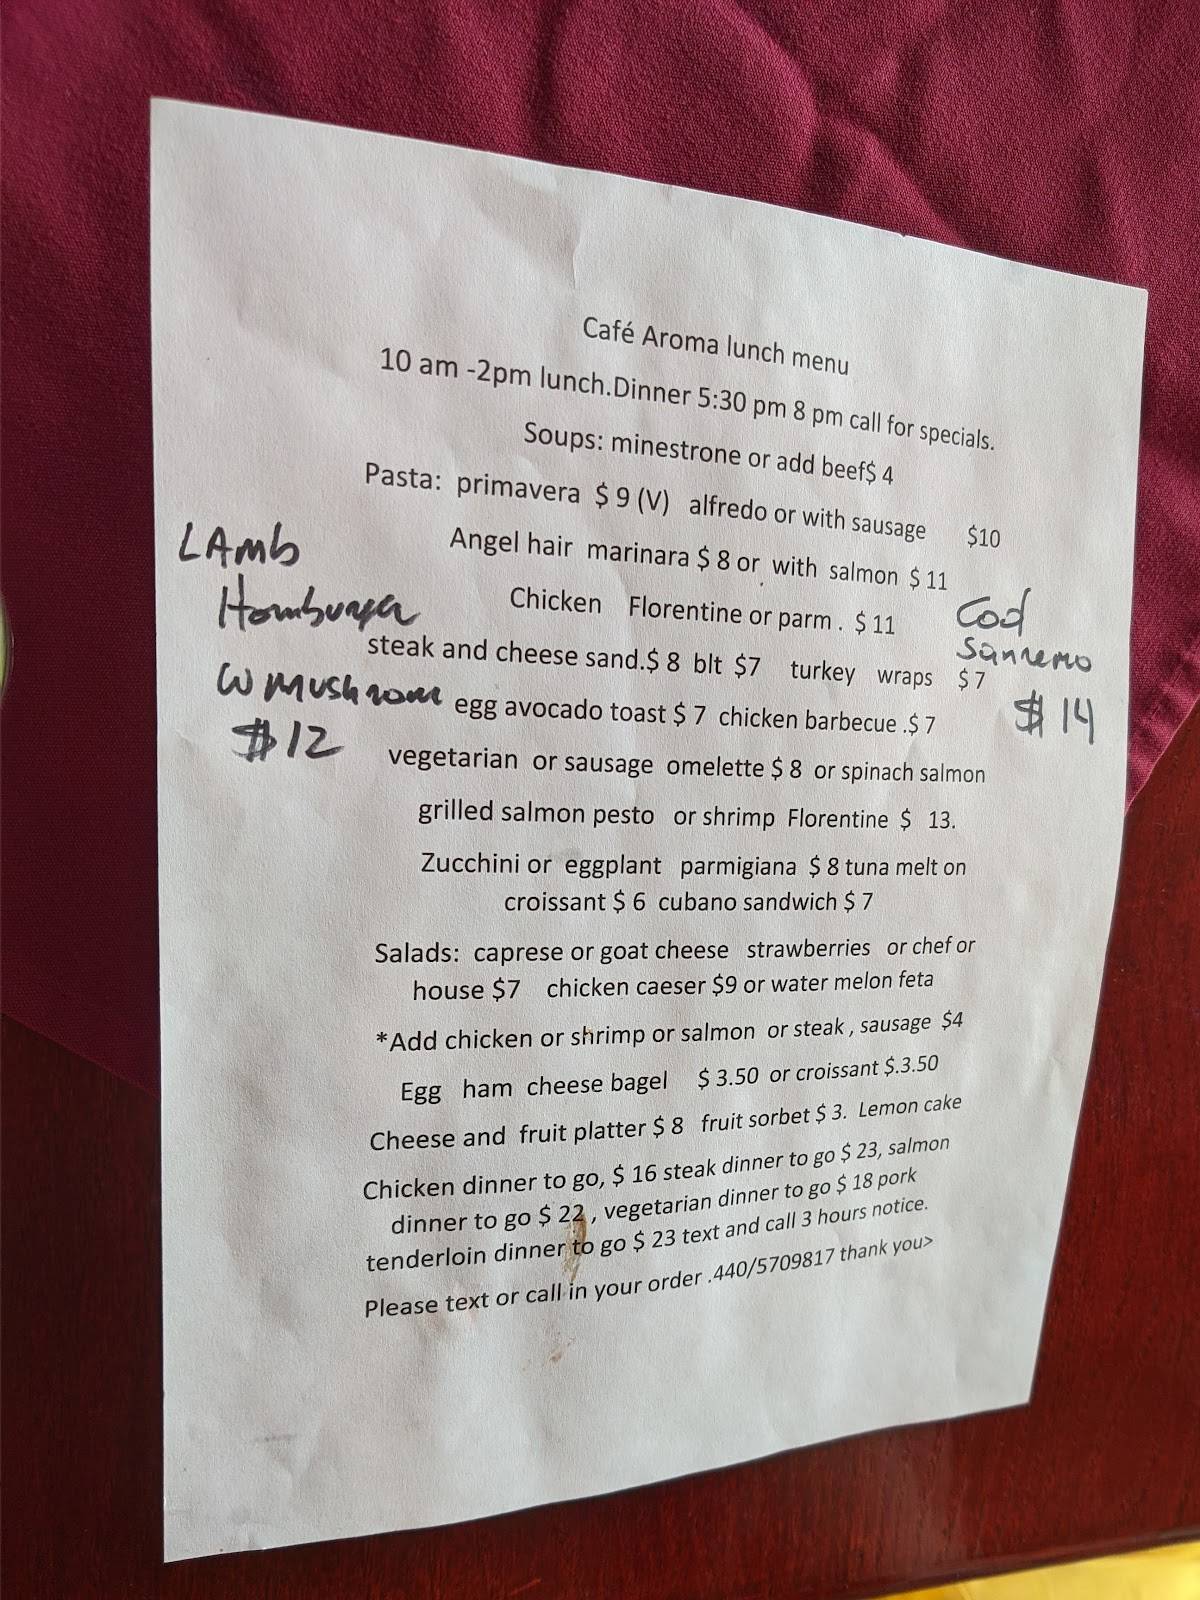 Café Aroma lunch menu
10 am -2pm lunch.Dinner 5:30 pm 8 pm call for specials.
Soups: minestrone or add beef$ 4
Pasta: primavera $ 9 (V) alfredo or with sausage $10
Angel hair marinara $ 8 or with salmon $ 11
Chicken Florentine or parm . $ 11
steak and cheese sand.$ 8 blt $7 turkey wraps $ 7
egg avocado toast $ 7 chicken barbecue .$ 7
vegetarian or sausage omelette $ 8 or spinach salmon
grilled salmon pesto or shrimp Florentine $ 13.
Zucchini or eggplant parmigiana $ 8 tuna melt on
croissant $ 6 cubano sandwich $ 7
Salads: caprese or goat cheese strawberries or chef or
house $7 chicken caeser $9 or water melon feta
*Add chicken or shrimp or salmon or steak , sausage $4
Egg ham cheese bagel $ 3.50 or croissant $.3.50
Cheese and fruit platter $ 8 fruit sorbet $ 3. Lemon cake
Chicken dinner to go, $ 16 steak dinner to go $ 23, salmon
dinner to go $ 22 , vegetarian dinner to go $ 18 pork
tenderloin dinner to go $ 23 text and call 3 hours notice.
Please text or call in your order .440/5709817 thank you>
LAmb
Homburger
W Mushroom
$12
Cod
Sanremo
$14